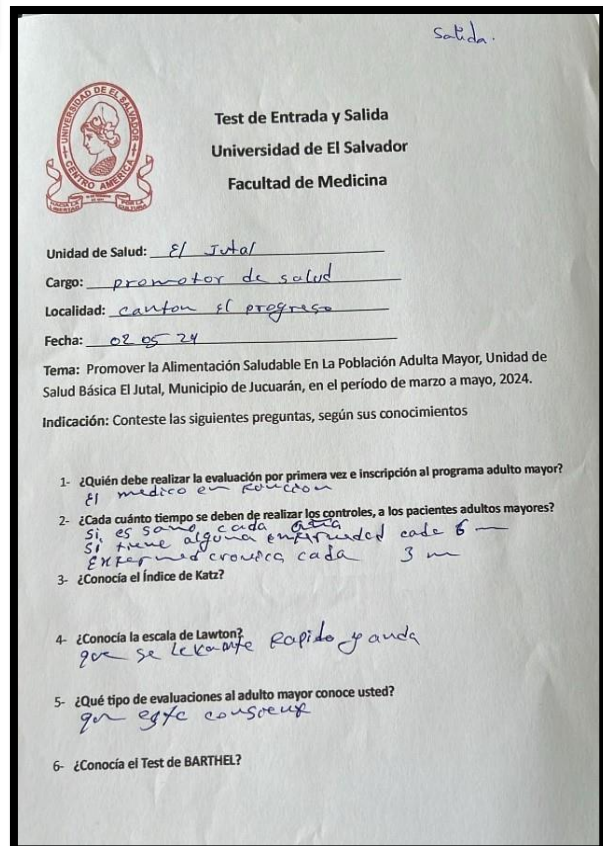 Salida.
UNIVERSIDAD DE EL SALVADOR
CENTRO AMERICA
HACIA LA LIBERTAD POR LA CULTURA
Test de Entrada y Salida
Universidad de El Salvador
Facultad de Medicina
Unidad de Salud: El Jutal
Cargo: promotor de salud
Localidad: canton El progreso
Fecha: 02 05 24
Tema: Promover la Alimentación Saludable En La Población Adulta Mayor, Unidad de
Salud Básica El Jutal, Municipio de Jucuarán, en el período de marzo a mayo, 2024.
Indicación: Conteste las siguientes preguntas, según sus conocimientos
1- ¿Quién debe realizar la evaluación por primera vez e inscripción al programa adulto mayor?
El medico en
2- ¿Cada cuánto tiempo se deben de realizar los controles, a los pacientes adultos mayores?
Si es sano cada
Si tiene alguna enfermedad cade 6 m
Enfermed cronica cada 3 m
3- ¿Conocía el Índice de Katz?
4- ¿Conocía la escala de Lawton?
que se levante Rapido y anda
5- ¿Qué tipo de evaluaciones al adulto mayor conoce usted?
que este
6- ¿Conocía el Test de BARTHEL?